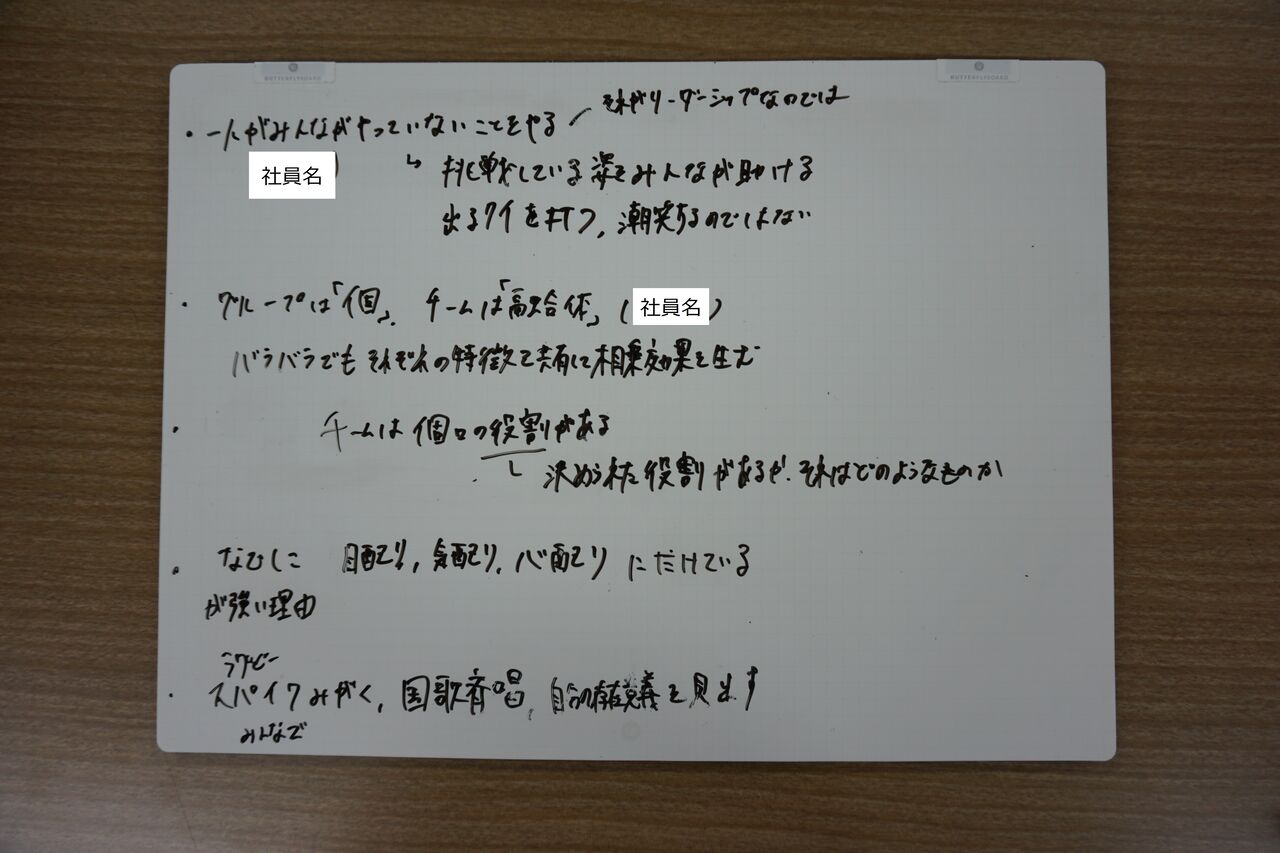 BUTTERFLYBOARD
BUTTERFLYBOARD
それがリーダーシップなのでは
・一人がみんながやっていないことをやる
社員名
↳ 挑戦している姿をみんなが助ける
出るクイを打つ、潮笑するのではない
・グループは「個」、チームは「高次合体」(社員名)
バラバラでもそれぞれの特徴を共有して相乗効果を生む
・チームは個々の役割がある
決められた役割があるが、それはどのようなものか
・なでしこ 目配り、気配り、心配り にたけている
が強い理由
ラグビー
・スパイクみがく、国歌斉唱、自分の存在意義を見出す
みんなで